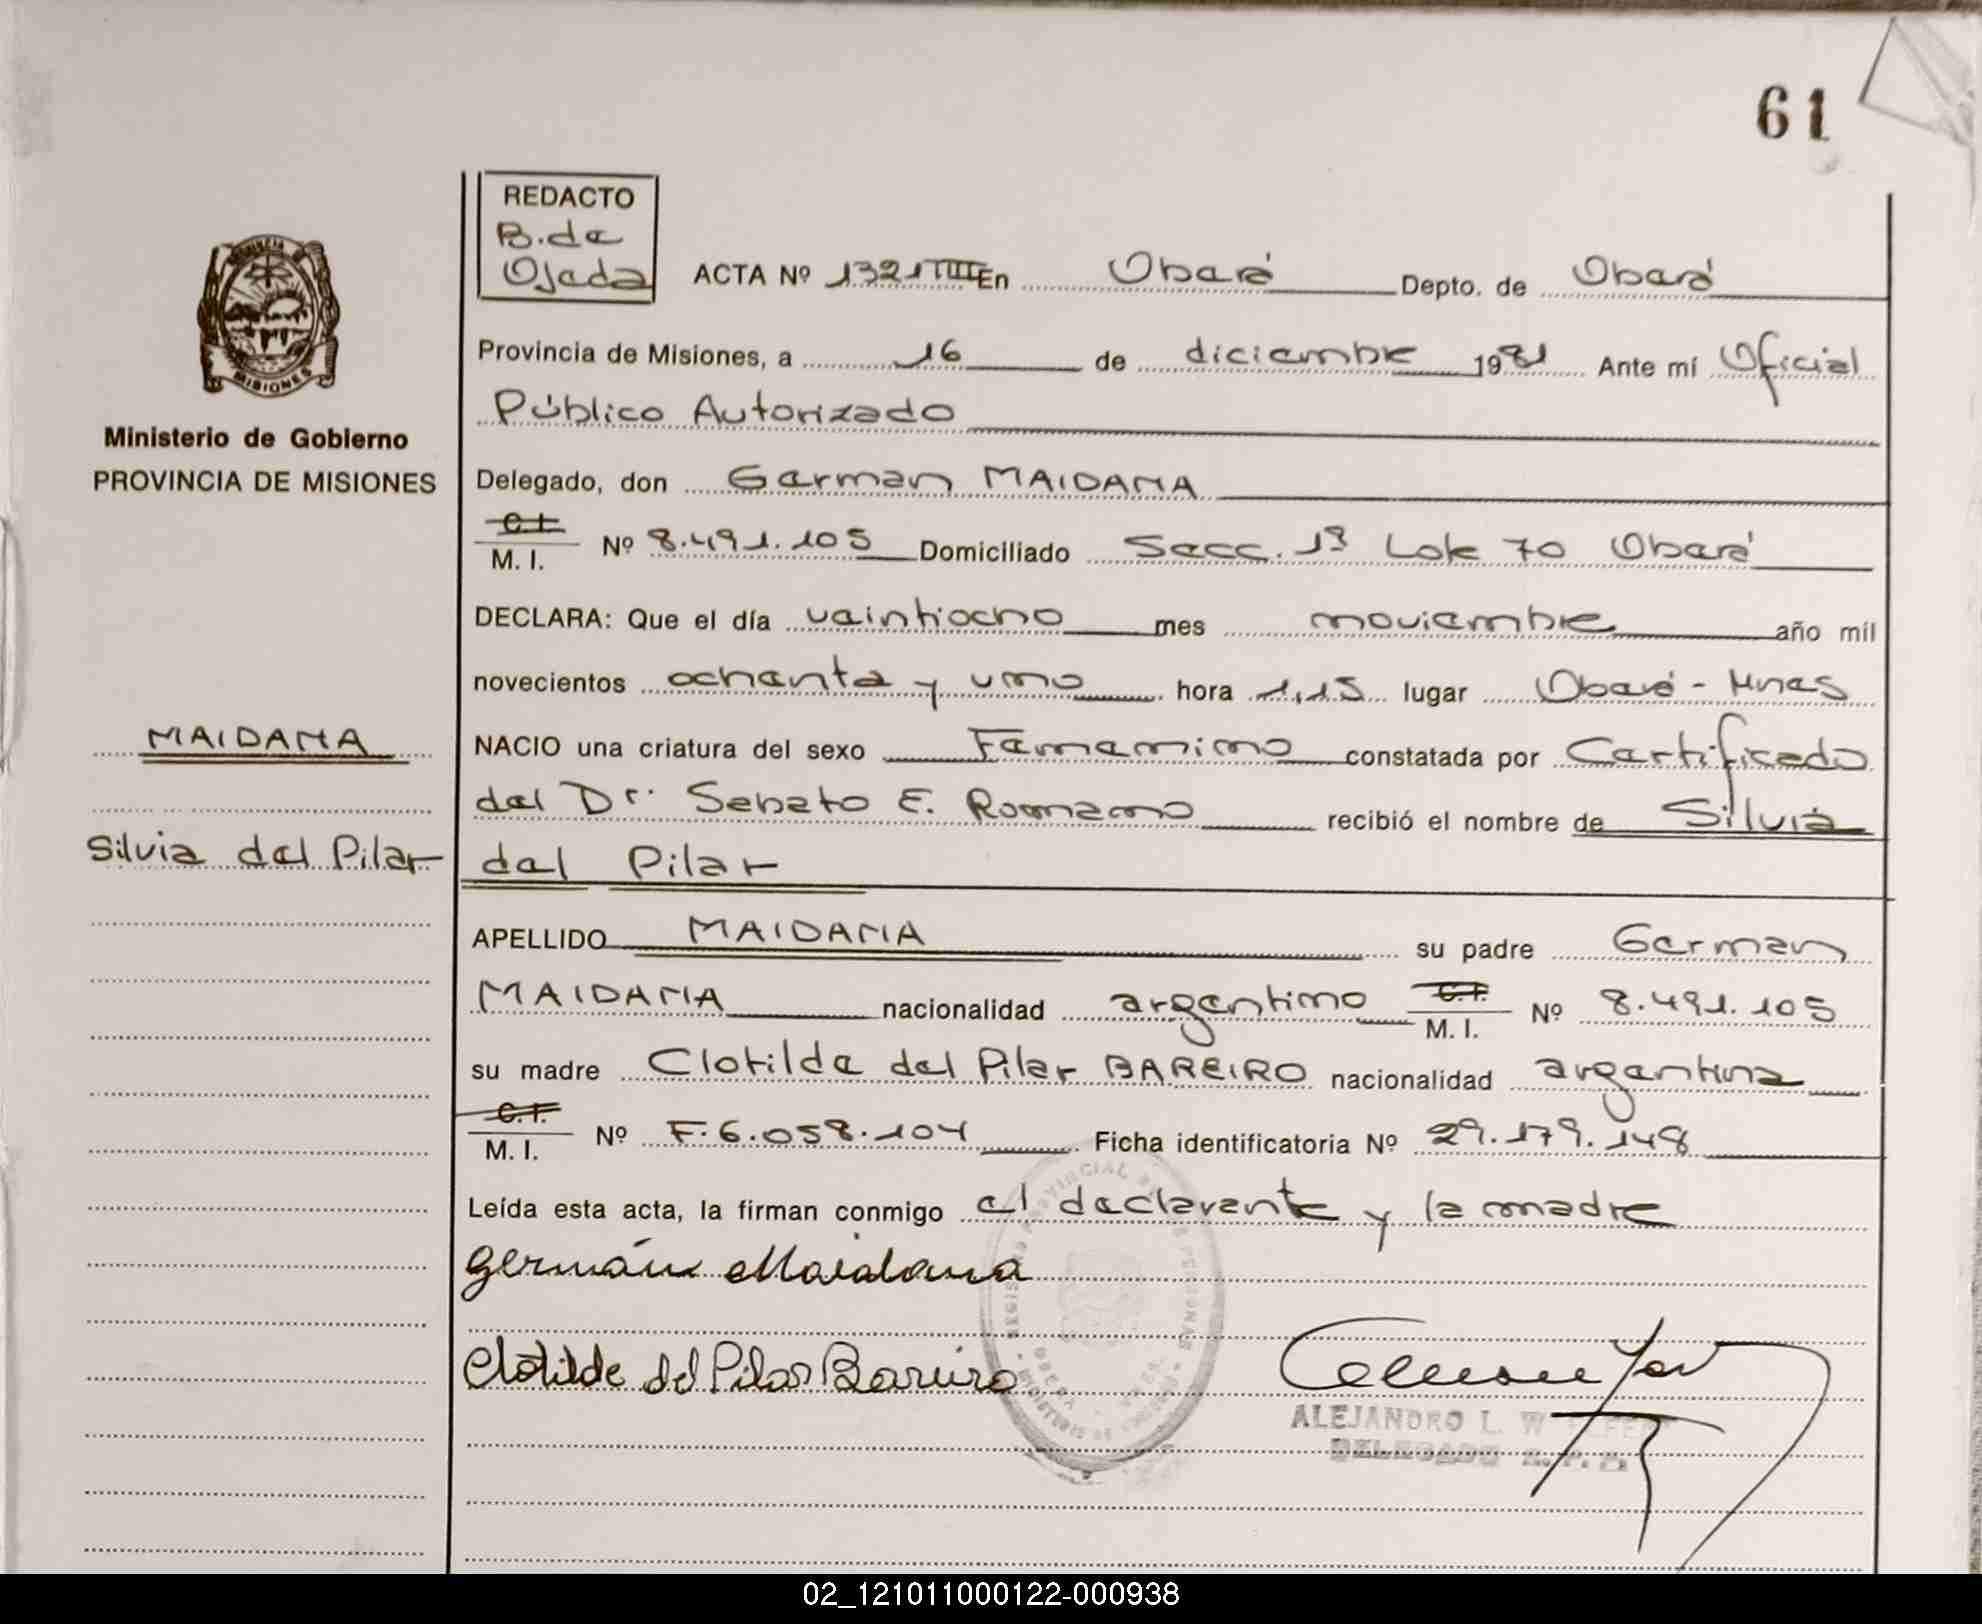 61
REDACTO
B. de
Ojeda
ACTA Nº 1321 TIII En Oberá Depto. de Oberá
Provincia de Misiones, a 16 de diciembre 1981 Ante mí Oficial
Público Autorizado
PROVINCIA
MISIONES
Ministerio de Gobierno
PROVINCIA DE MISIONES
Delegado, don German MAIDANA
C.I.
M. I. Nº 8.491.105 Domiciliado Secc. 1ª Lote 70 Oberá
DECLARA: Que el día veintiocho mes noviembre año mil
novecientos ochenta y uno hora 1,15 lugar Oberá - Mnes
MAIDANA
NACIO una criatura del sexo Femenino constatada por Certificado
del Dr. Sebato E. Romano recibió el nombre de Silvia
Silvia del Pilar
del Pilar
APELLIDO MAIDANA su padre German
MAIDANA nacionalidad argentino C.I. M. I. Nº 8.491.105
su madre Clotilde del Pilar BAREIRO nacionalidad argentina
C.I.
M. I. Nº F. 6.058.104 Ficha identificatoria Nº 29.179.148
Leída esta acta, la firman conmigo el declarante y la madre
Germán Maidana
Clotilde del Pilar Bareiro
ALEJANDRO L.
DELEGADO R. P. P.
02_121011000122-000938